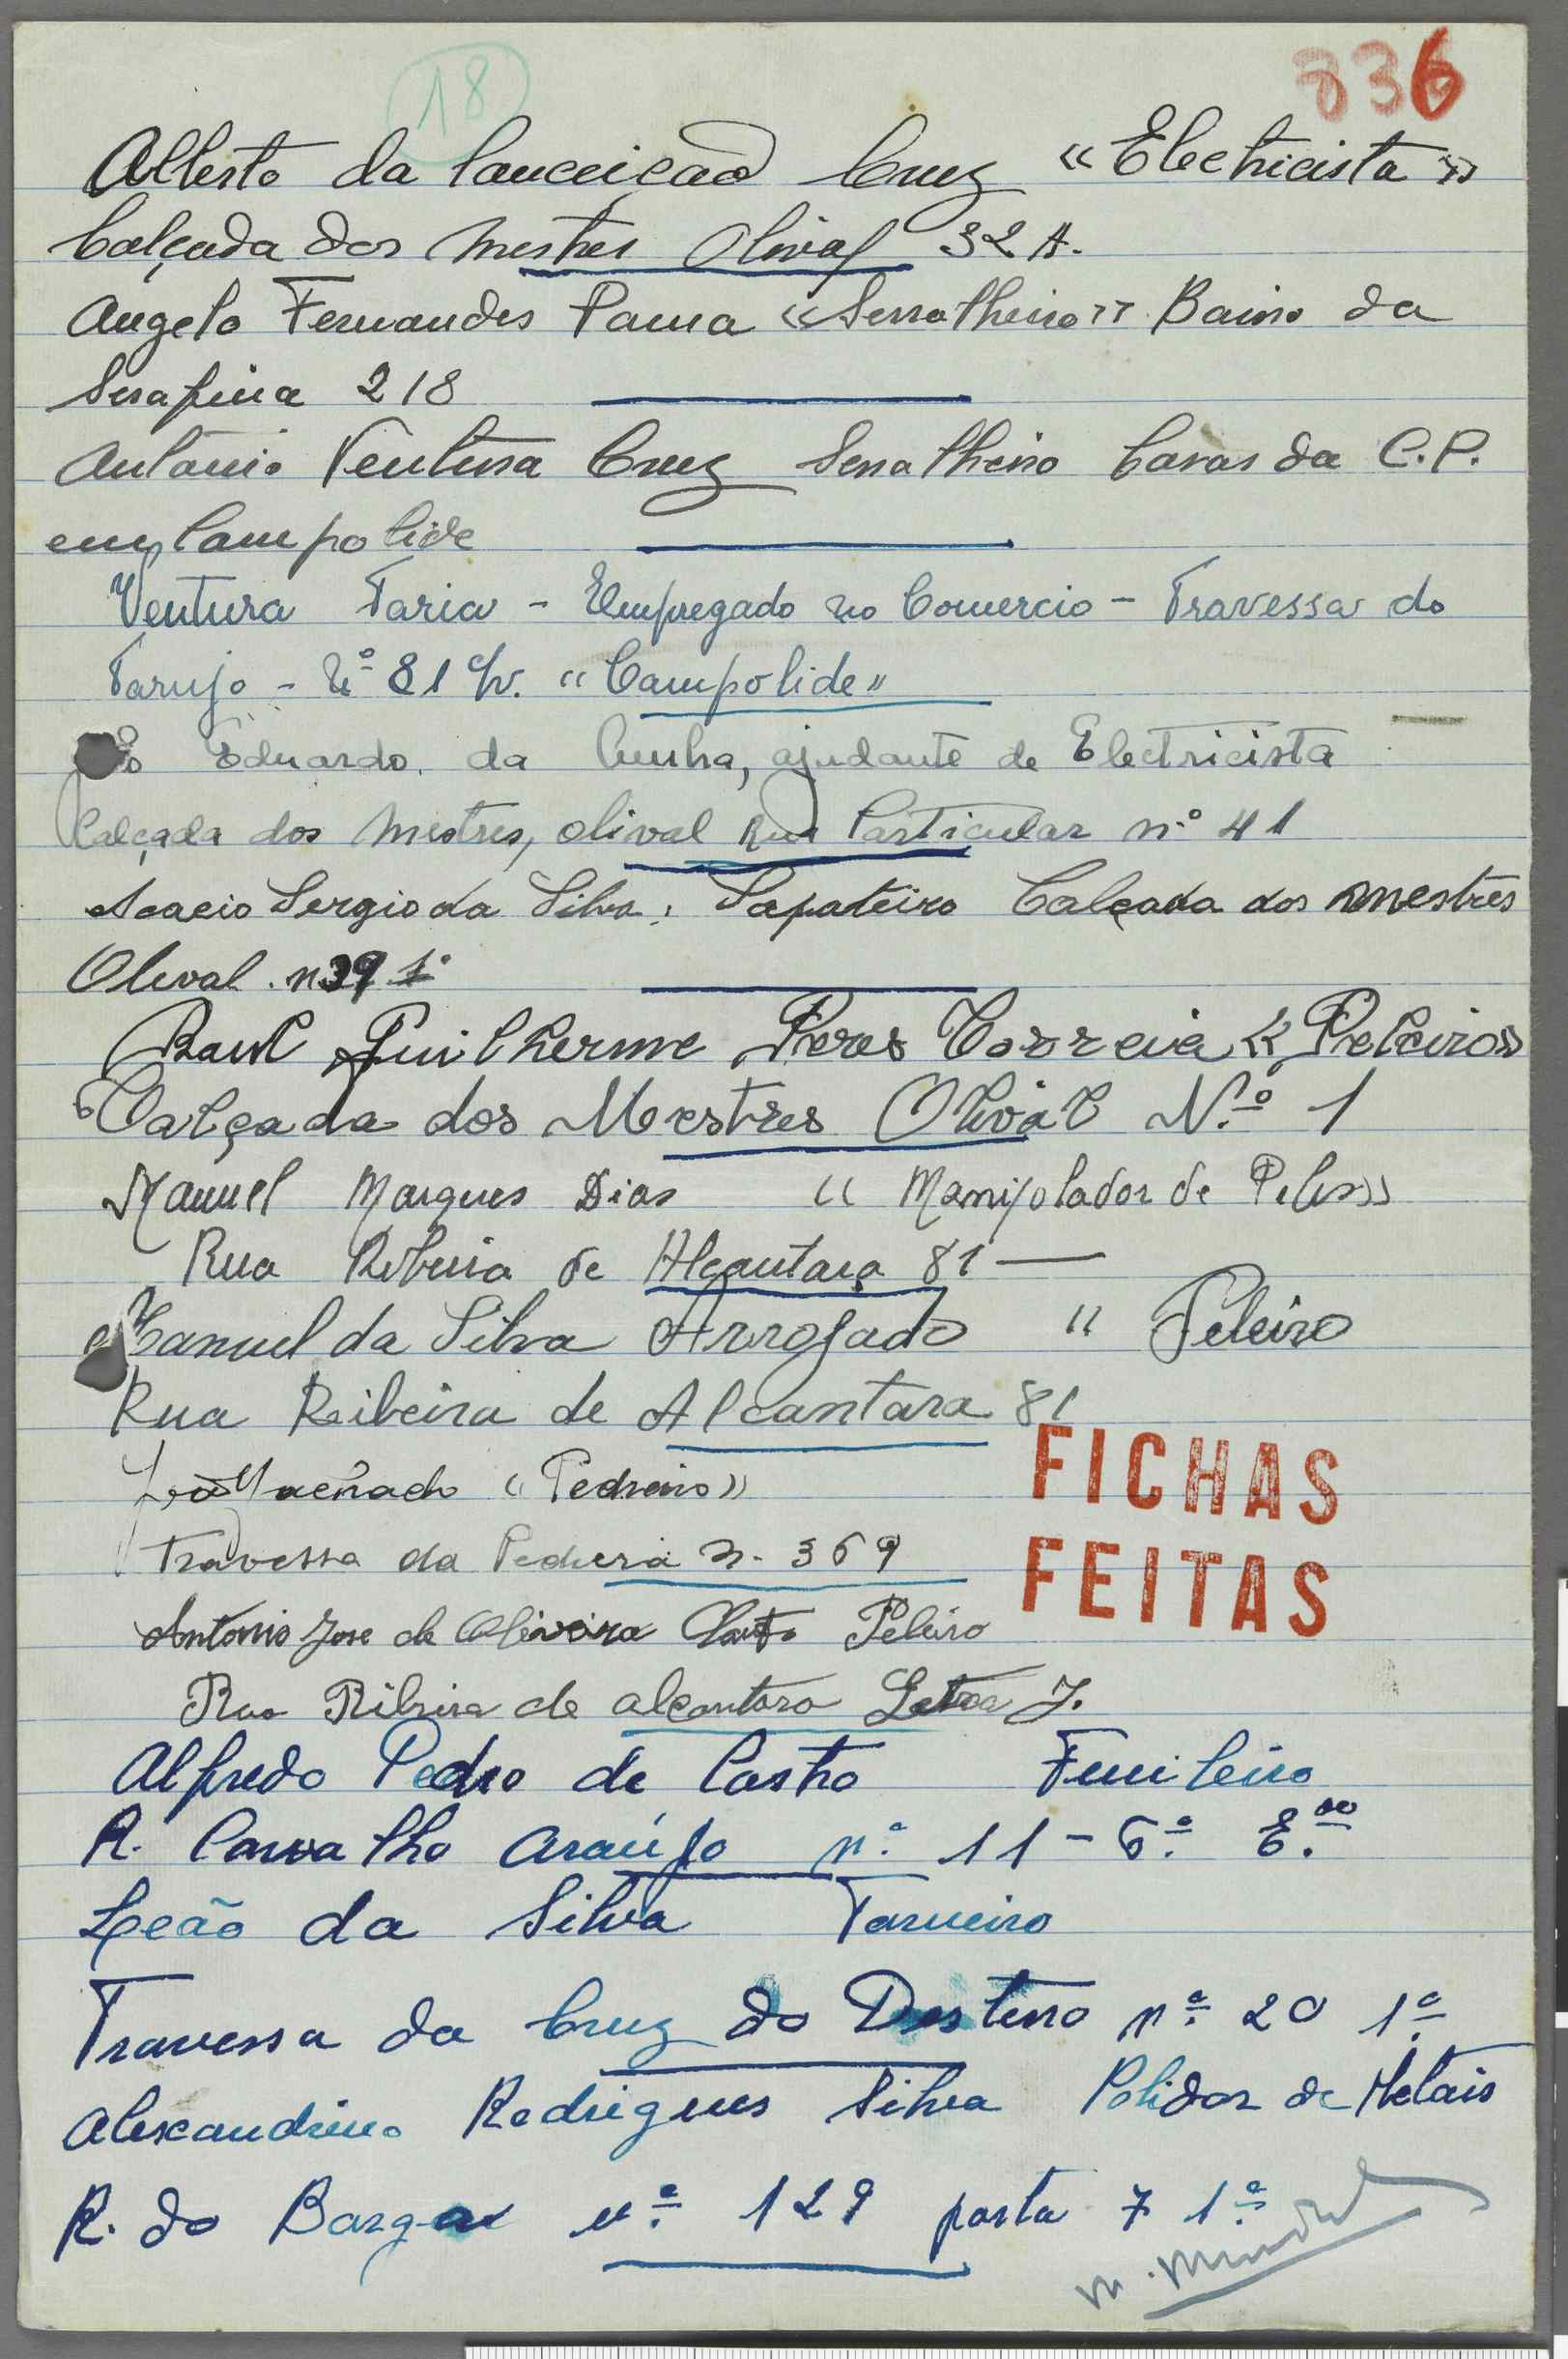 18
836
Alberto da Conceição Cruz «Electricista»
Calçada dos Mestres Olival 32 A.
Angelo Fernandes Pama «Serralheiro» Bairro da
Serafina 218
António Ventura Cruz Serralheiro Casas da C.P.
em Campolide
Ventura Faria - Empregado no Comercio - Travessa do
Tarujo - Nº 81 c/v. "Campolide"
Eduardo da Cunha, ajudante de Electricista
Calçada dos Mestres, olival Rua Particular nº 41
Acacio Sergio da Silva, Sapateiro Calçada dos mestres
Olival. n 39 1º
Raul Guilherme Peres Correia «Peleiro»
Calçada dos Mestres Olival N.º 1
Manuel Marques Dias «Manipolador de Peles»
Rua Ribeira de Alcantara 81 —
Manuel da Silva Arrojado " Peleiro
Rua Ribeira de Alcantara 81
Machado «Pedreiro»
Travessa da Pedreira N. 369
FICHAS
FEITAS
Antonio Jose de Oliveira Peleiro
Rua Ribeira de alcantara Letra J.
Alfredo Pedro de Castro Funileiro
R. Carvalho Araújo nº 11 - 6.º E.do
Leão da Silva Torneiro
Travessa da Cruz do Desterro nº 20 1º
Alexandrino Rodrigues Silva Polidor de Metais
R. do Borga nº 129 porta 7 1º